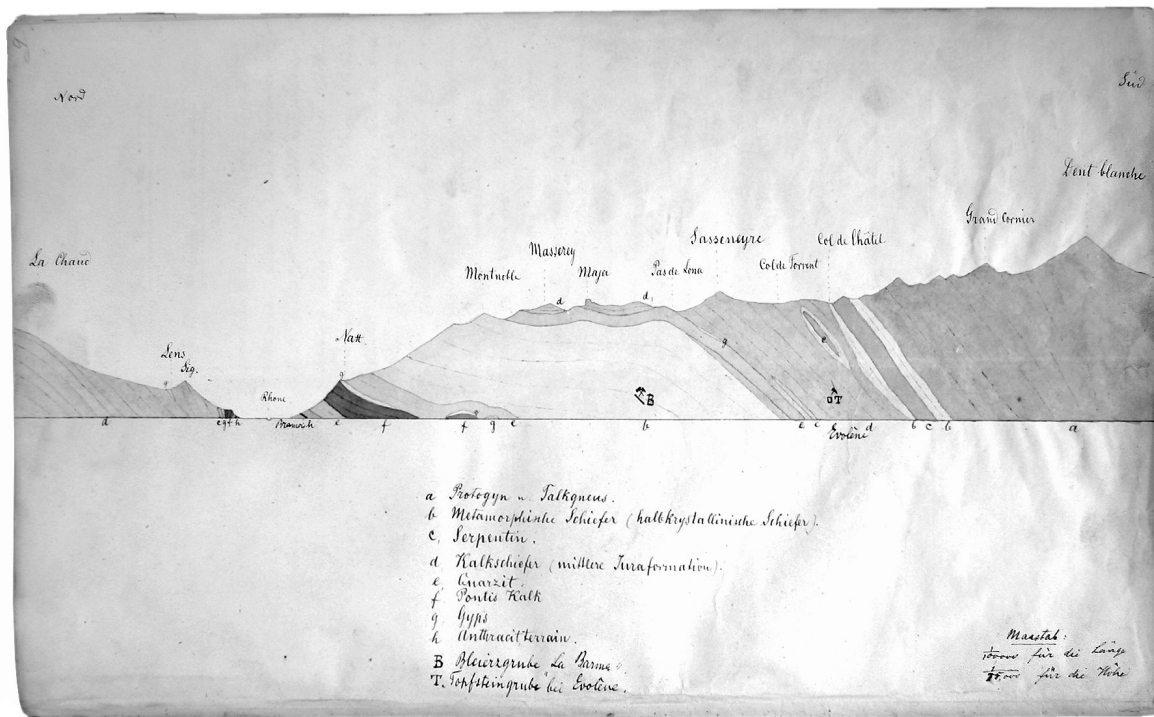 Nord
Süd
Dent blanche
Grand Cornier
Col de Châtel
Sasseneyre
La Chaud
Masserey
Col de Torrent
Montnoble
Maja
Pas de Lona
d
d
Natt.
g
Lens
Sig.
g
e
g
Rhone
g
B
T
d
e g f h
Bramois
e
f
f
g
e
b
e
c
Evolène
d
b
c
b
a
a Protogyn u. Talkgneus.
b Metamorphische Schiefer (halbkrystallinische Schiefer).
c, Serpentin.
d Kalkschiefer (mittlere Juraformation).
e, Quarzit.
f Pontis Kalk
g Gyps
h Anthracitterrain.
B Bleierzgrube La Barma
T. Topfsteingrube bei Evolène.
Maastab:
für die Länge
für die Höhe